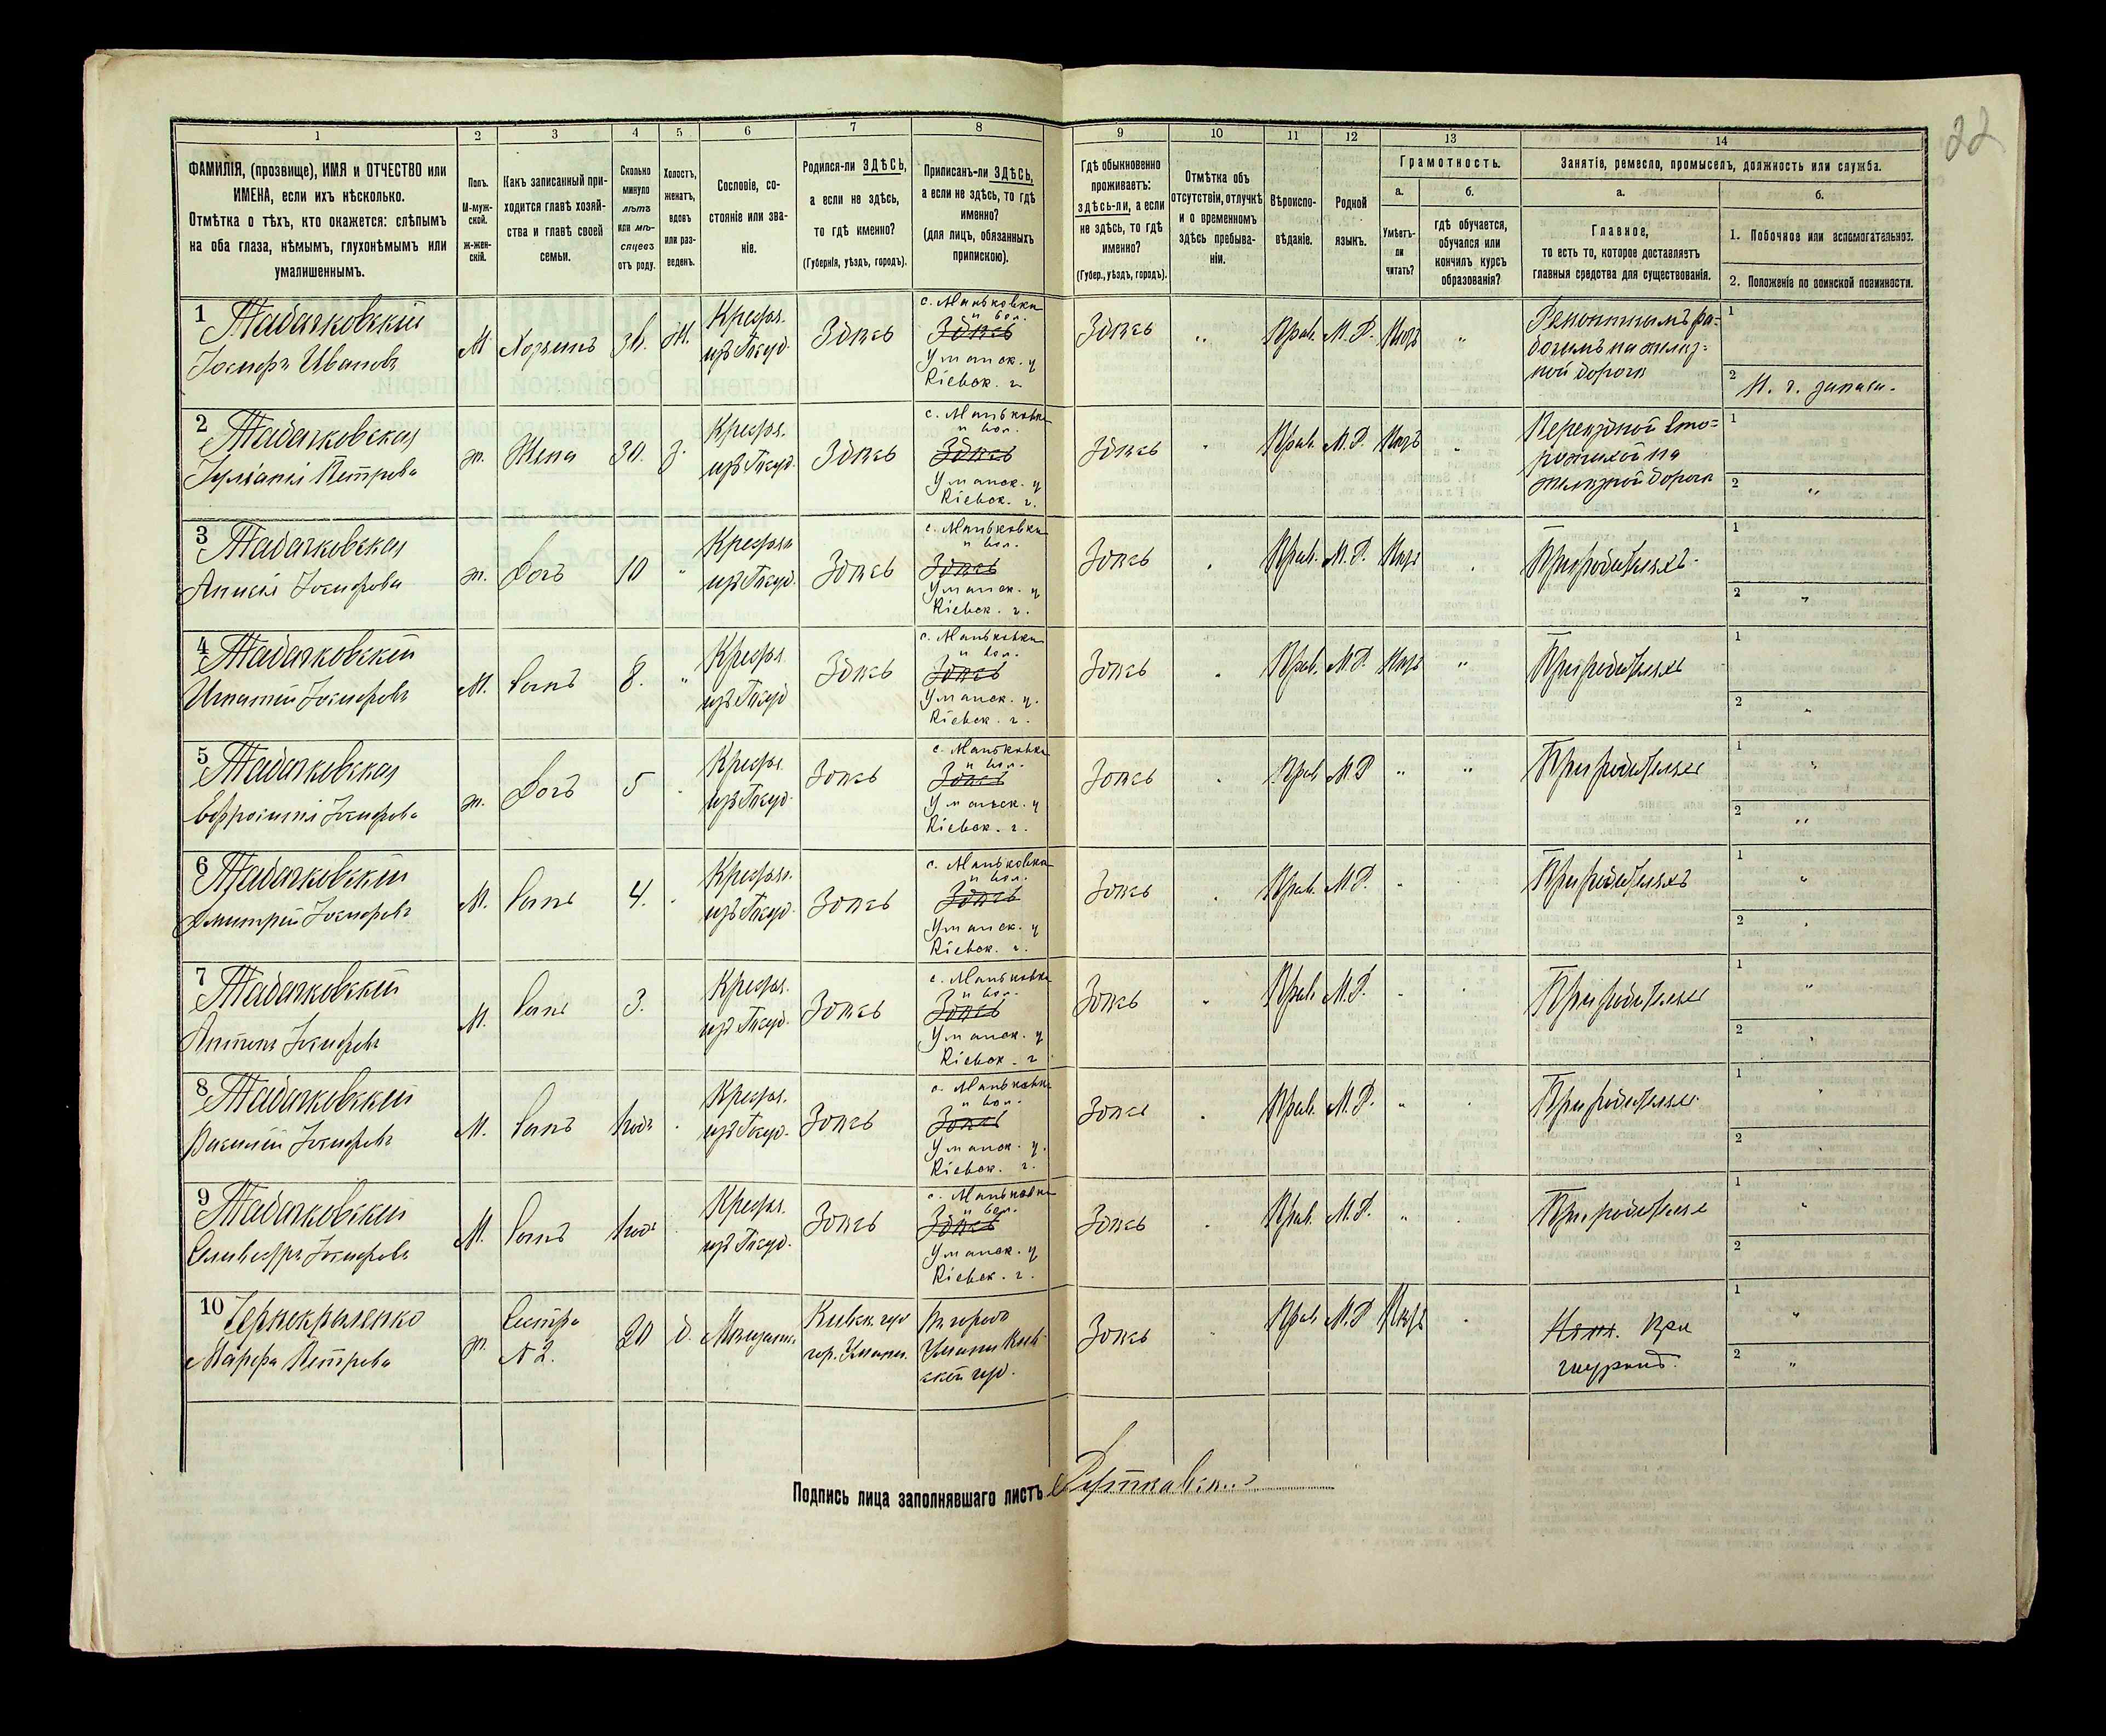 22
1 2 3 4 5 6 7 8 9 10 11 12 13 14
ФАМИЛІЯ, (прозвище), ИМЯ и ОТЧЕСТВО или
ИМЕНА, если ихъ нѣсколько.
Отмѣтка о тѣхъ, кто окажется: слѣпымъ
на оба глаза, нѣмымъ, глухонѣмымъ или
умалишеннымъ.
Полъ.
М-муж-
ской.
ж-жен-
скій.
Какъ записанный при-
ходится главѣ хозяй-
ства и главѣ своей
семьи.
Сколько
минуло
лѣтъ
или мѣ-
сяцевъ
отъ роду.
Холостъ,
женатъ,
вдовъ
или раз-
веденъ.
Сословіе, со-
стояніе или зва-
ніе.
Родился-ли ЗДѢСЬ,
а если не здѣсь,
то гдѣ именно?
(Губернія, уѣздъ, городъ).
Приписанъ-ли ЗДѢСЬ,
а если не здѣсь, то гдѣ
именно?
(для лицъ, обязанныхъ
припискою).
Гдѣ обыкновенно
проживаетъ:
здѣсь-ли, а если
не здѣсь, то гдѣ
именно?
(Губер., уѣздъ, городъ).
Отмѣтка объ
отсутствіи, отлучкѣ
и о временномъ
здѣсь пребыва-
ніи.
Вѣроиспо-
вѣданіе.
Родной
языкъ.
Грамотность.
а.
Умѣетъ-
ли
читать?
б.
гдѣ обучается,
обучался или
кончилъ курсъ
образованія?
Занятіе, ремесло, промыселъ, должность или служба.
а.
Главное,
то есть то, которое доставляетъ
главныя средства для существованія.
б.
1. Побочное или вспомогательное.
2. Положеніе по воинской повинности.
1 Табачковскій
Іосифъ Ивановъ
М Хозяинъ М. Крестья.
изъ Госуд.
Здѣсь
с. Маньковки
и вол.
Здѣсь
Уманск. у
Кіевск. г
Здѣсь " Прав. М. Р. Нѣтъ "
Ремонтнымъ ра-
бочимъ на желѣз-
ной дорогѣ
1
2 Н. ч. запаса.
2 Табачковская
Іуліанія Петрова
ж. Жена 30. з. Крестья.
изъ Госуд.
Здѣсь
с. Маньковки
и вол.
Здѣсь
Уманск. у
Кіевск. г.
Здѣсь Прав. М. Р. Нѣтъ
Переѣздной сто-
рожихой на
желѣзной дорогѣ
1
2 "
3 Табачковская
Анисія Іосифова
ж. Дочь 10 " Крестья
изъ Госуд.
Здѣсь
с. Маньковки
и вол.
Здѣсь
Уманск. у
Кіевск. г.
Здѣсь Прав. М. Р. Нѣтъ
При родителяхъ.
1
2 "
4 Табачковскій
Игнатій Іосифовъ
М. Сынъ 8. " Крестья
изъ Госуд
Здѣсь
с. Маньковки
и вол.
Здѣсь
Уманск. у.
Кіевск. г.
Здѣсь Прав. М. Р. Нѣтъ "
При родителяхъ
1
2 "
5 Табачковская
Ефросинія Іосифова
ж. Дочь 5 Крестья
изъ Госуд.
Здѣсь
с. Маньковки
и вол.
Здѣсь
Уманск. у
Кіевск. г.
Здѣсь Прав М. Р " "
При родителяхъ
1 "
2 "
6 Табачковскій
Дмитрій Іосифовъ
М. Сынъ 4. Крестья.
изъ Госуд.
Здѣсь
с. Маньковки
и вол.
Здѣсь
Уманск. у
Кіевск. г.
Здѣсь Прав. М. Р.
При родителяхъ
1 "
2 "
7 Табачковскій
Антонъ Іосифовъ
М. Сынъ 3. Крестья.
изъ Госуд.
Здѣсь
с. Маньковки
и вол.
Здѣсь
Уманск. у
Кіевск. г
Здѣсь Прав. М. Р.
При родителяхъ
1 "
2 "
8 Табачковскій
Василій Іосифовъ
М. Сынъ Крестья.
изъ Госуд.
Здѣсь
с. Маньковки
и вол.
Здѣсь
Уманск. у.
Кіевск. г.
Здѣсь Прав. М. Р. "
При родителяхъ
1 "
2 "
9 Табачковскій
Сильвестръ Іосифовъ
М. Сынъ Крестья.
изъ Госуд.
Здѣсь
с. Маньковки
и вол.
Здѣсь
Уманск. у
Кіевск. г.
Здѣсь Прав. М. Р. "
При родителяхъ
1 "
2
10 Чернокриленко
Марфа Петрова
ж. Сестра
№ 2.
20 д. Мѣщанк.
Кіевск. губ
гор. Умань.
Къ городу
Умани Кіев-
ской губ.
Здѣсь Прав. М. Р Нѣтъ
При
1 "
2 "
Подпись лица заполнявшаго листъ